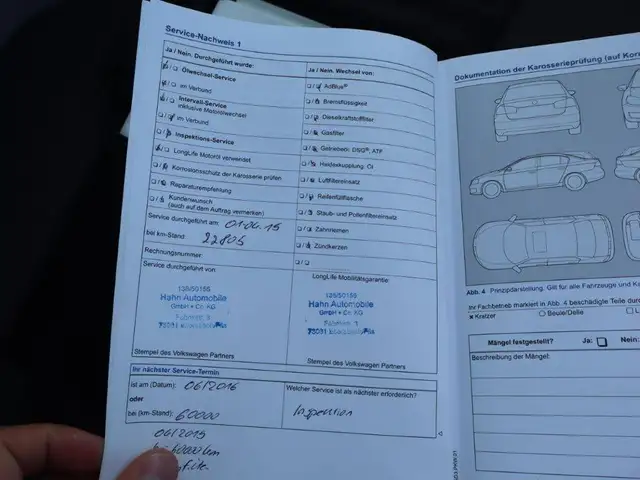 Service-Nachweis 1
Ja / Nein. Durchgeführt wurde:
Ölwechsel-Service
im Verbund
Intervall-Service
inklusive Motorölwechsel
im Verbund
Inspektions-Service
LongLife Motoröl verwendet
Korrosionsschutz der Karosserie prüfen
Reparaturempfehlung
Kundenwunsch
(auch auf dem Auftrag vermerken)
Service durchgeführt am: 01.04.15
bei km-Stand: 22805
Rechnungsnummer:
Service durchgeführt von:
Hahn Automobile
GmbH + Co. KG
Stempel des Volkswagen Partners
Ja / Nein. Wechsel von:
AdBlue®
Bremsflüssigkeit
Dieselkraftstofffilter
Gasfilter
Getriebeöl: DSG®, ATF
Haldexkupplung, Öl
Luftfiltereinsatz
Reifenfüllflasche
Staub- und Pollenfiltereinsatz
Zahnriemen
Zündkerzen
LongLife Mobilitätsgarantie:
Hahn Automobile
GmbH + Co. KG
Stempel des Volkswagen Partners
Ihr nächster Service-Termin
ist am (Datum): 06/2016
oder
bei (km-Stand): 60000
Welcher Service ist als nächster erforderlich?
Inspektion
06/2015
60000 km
Dokumentation der Karosserieprüfung (auf
Abb. 4 Prinzipdarstellung. Gilt für alle Fahrzeuge und
Ihr Fachbetrieb markiert in Abb. 4 beschädigte Teile
x Kratzer
Beule/Delle
Mängel festgestellt?
Ja:
Nein:
Beschreibung der Mängel: